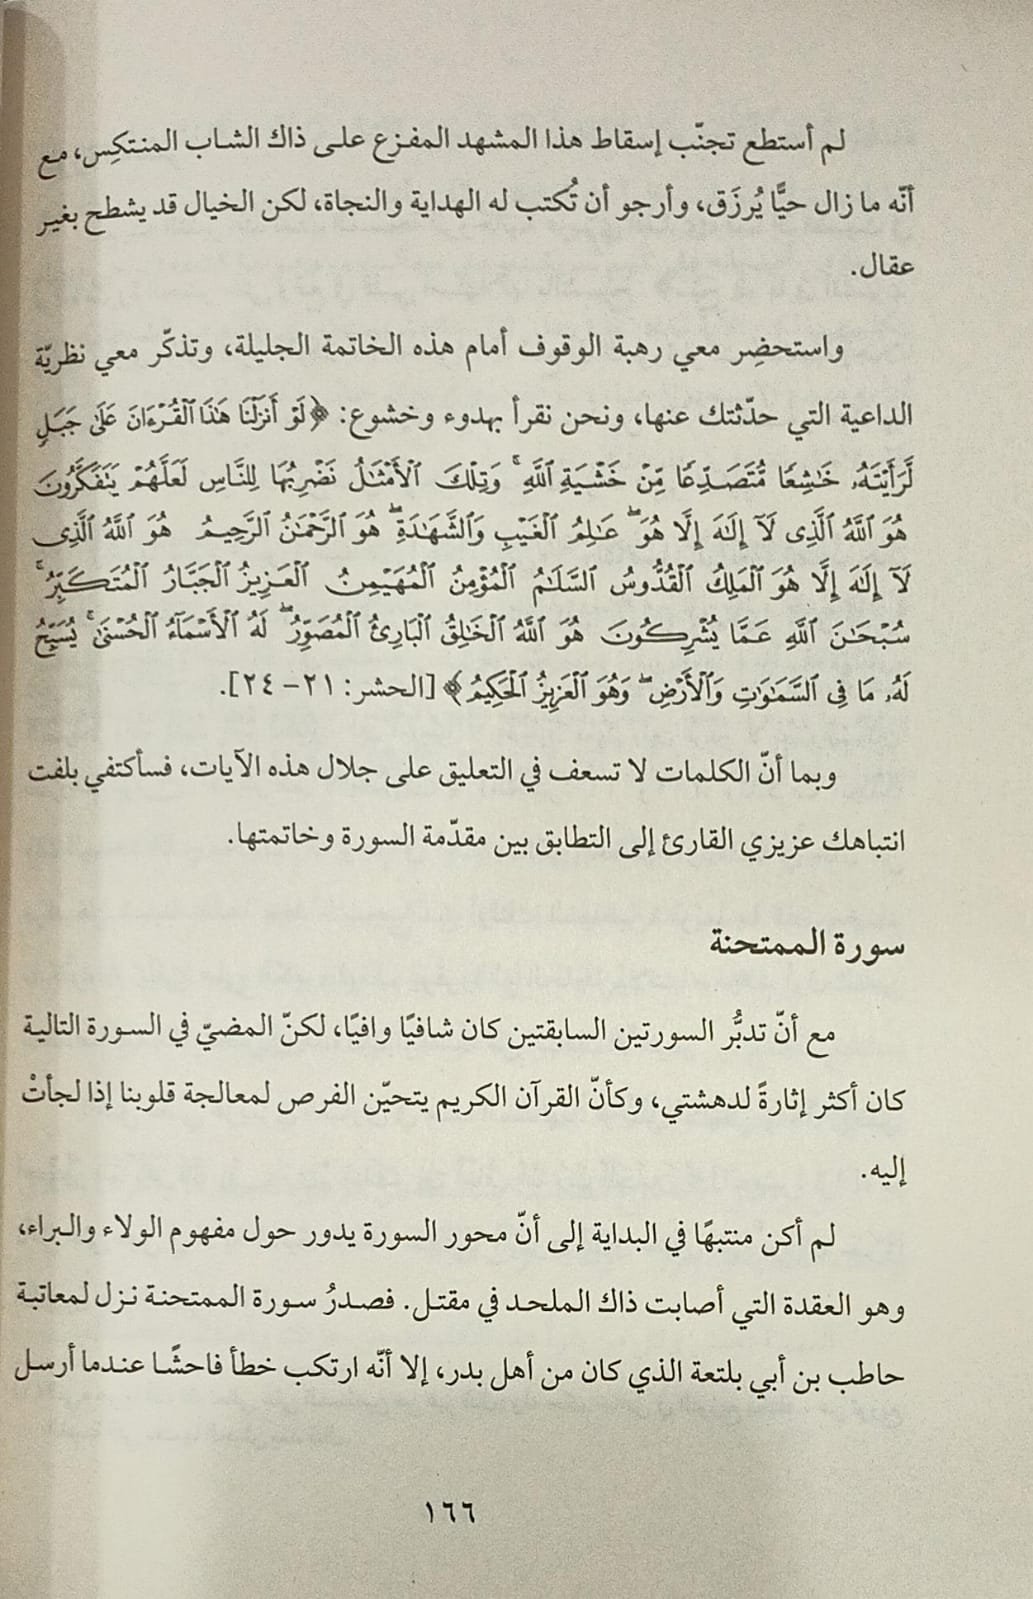 لم أستطع تجنّب إسقاط هذا المشهد المفزع على ذاك الشاب المنتكِس، مع
أنّه ما زال حيًّا يُرزَق، وأرجو أن تُكتب له الهداية والنجاة، لكن الخيال قد يشطح بغير
عقال.
واستحضِر معي رهبة الوقوف أمام هذه الخاتمة الجليلة، وتذكّر معي نظريّة
الداعية التي حدّثتك عنها، ونحن نقرأ بهدوء وخشوع: ﴿لَوْ أَنزَلْنَا هَٰذَا ٱلْقُرْءَانَ عَلَىٰ جَبَلٍ
لَّرَأَيْتَهُۥ خَٰشِعًا مُّتَصَدِّعًا مِّنْ خَشْيَةِ ٱللَّهِ ۚ وَتِلْكَ ٱلْأَمْثَٰلُ نَضْرِبُهَا لِلنَّاسِ لَعَلَّهُمْ يَتَفَكَّرُونَ
هُوَ ٱللَّهُ ٱلَّذِى لَآ إِلَٰهَ إِلَّا هُوَ ۖ عَٰلِمُ ٱلْغَيْبِ وَٱلشَّهَٰدَةِ ۖ هُوَ ٱلرَّحْمَٰنُ ٱلرَّحِيمُ هُوَ ٱللَّهُ ٱلَّذِى
لَآ إِلَٰهَ إِلَّا هُوَ ٱلْمَلِكُ ٱلْقُدُّوسُ ٱلسَّلَٰمُ ٱلْمُؤْمِنُ ٱلْمُهَيْمِنُ ٱلْعَزِيزُ ٱلْجَبَّارُ ٱلْمُتَكَبِّرُ ۚ
سُبْحَٰنَ ٱللَّهِ عَمَّا يُشْرِكُونَ هُوَ ٱللَّهُ ٱلْخَٰلِقُ ٱلْبَارِئُ ٱلْمُصَوِّرُ ۖ لَهُ ٱلْأَسْمَآءُ ٱلْحُسْنَىٰ ۚ يُسَبِّحُ
لَهُۥ مَا فِى ٱلسَّمَٰوَٰتِ وَٱلْأَرْضِ ۖ وَهُوَ ٱلْعَزِيزُ ٱلْحَكِيمُ﴾ [الحشر: ٢١- ٢٤].
وبما أنّ الكلمات لا تسعف في التعليق على جلال هذه الآيات، فسأكتفي بلفت
انتباهك عزيزي القارئ إلى التطابق بين مقدّمة السورة وخاتمتها.
سورة الممتحنة
مع أنّ تدبُّر السورتين السابقتين كان شافيًا وافيًا، لكنّ المضيّ في السورة التالية
كان أكثر إثارةً لدهشتي، وكأنّ القرآن الكريم يتحيّن الفرص لمعالجة قلوبنا إذا لجأتْ
إليه.
لم أكن منتبهًا في البداية إلى أنّ محور السورة يدور حول مفهوم الولاء والبراء،
وهو العقدة التي أصابت ذاك الملحد في مقتل. فصدرُ سورة الممتحنة نزل لمعاتبة
حاطب بن أبي بلتعة الذي كان من أهل بدر، إلا أنّه ارتكب خطأ فاحشًا عندما أرسل
١٦٦